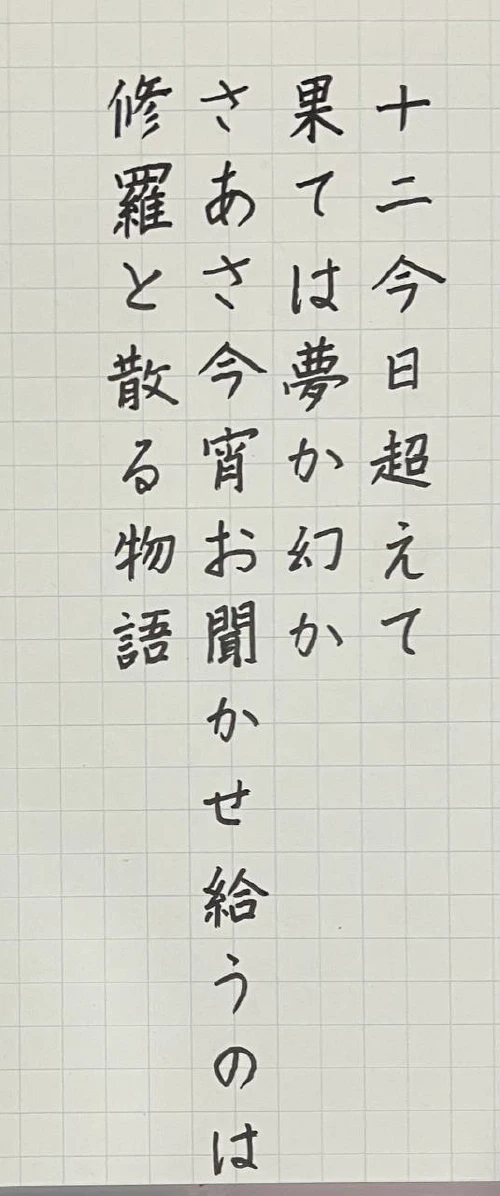 十二今日超えて
果ては夢か幻か
さあさ今宵お聞かせ給うのは
修羅と散る物語